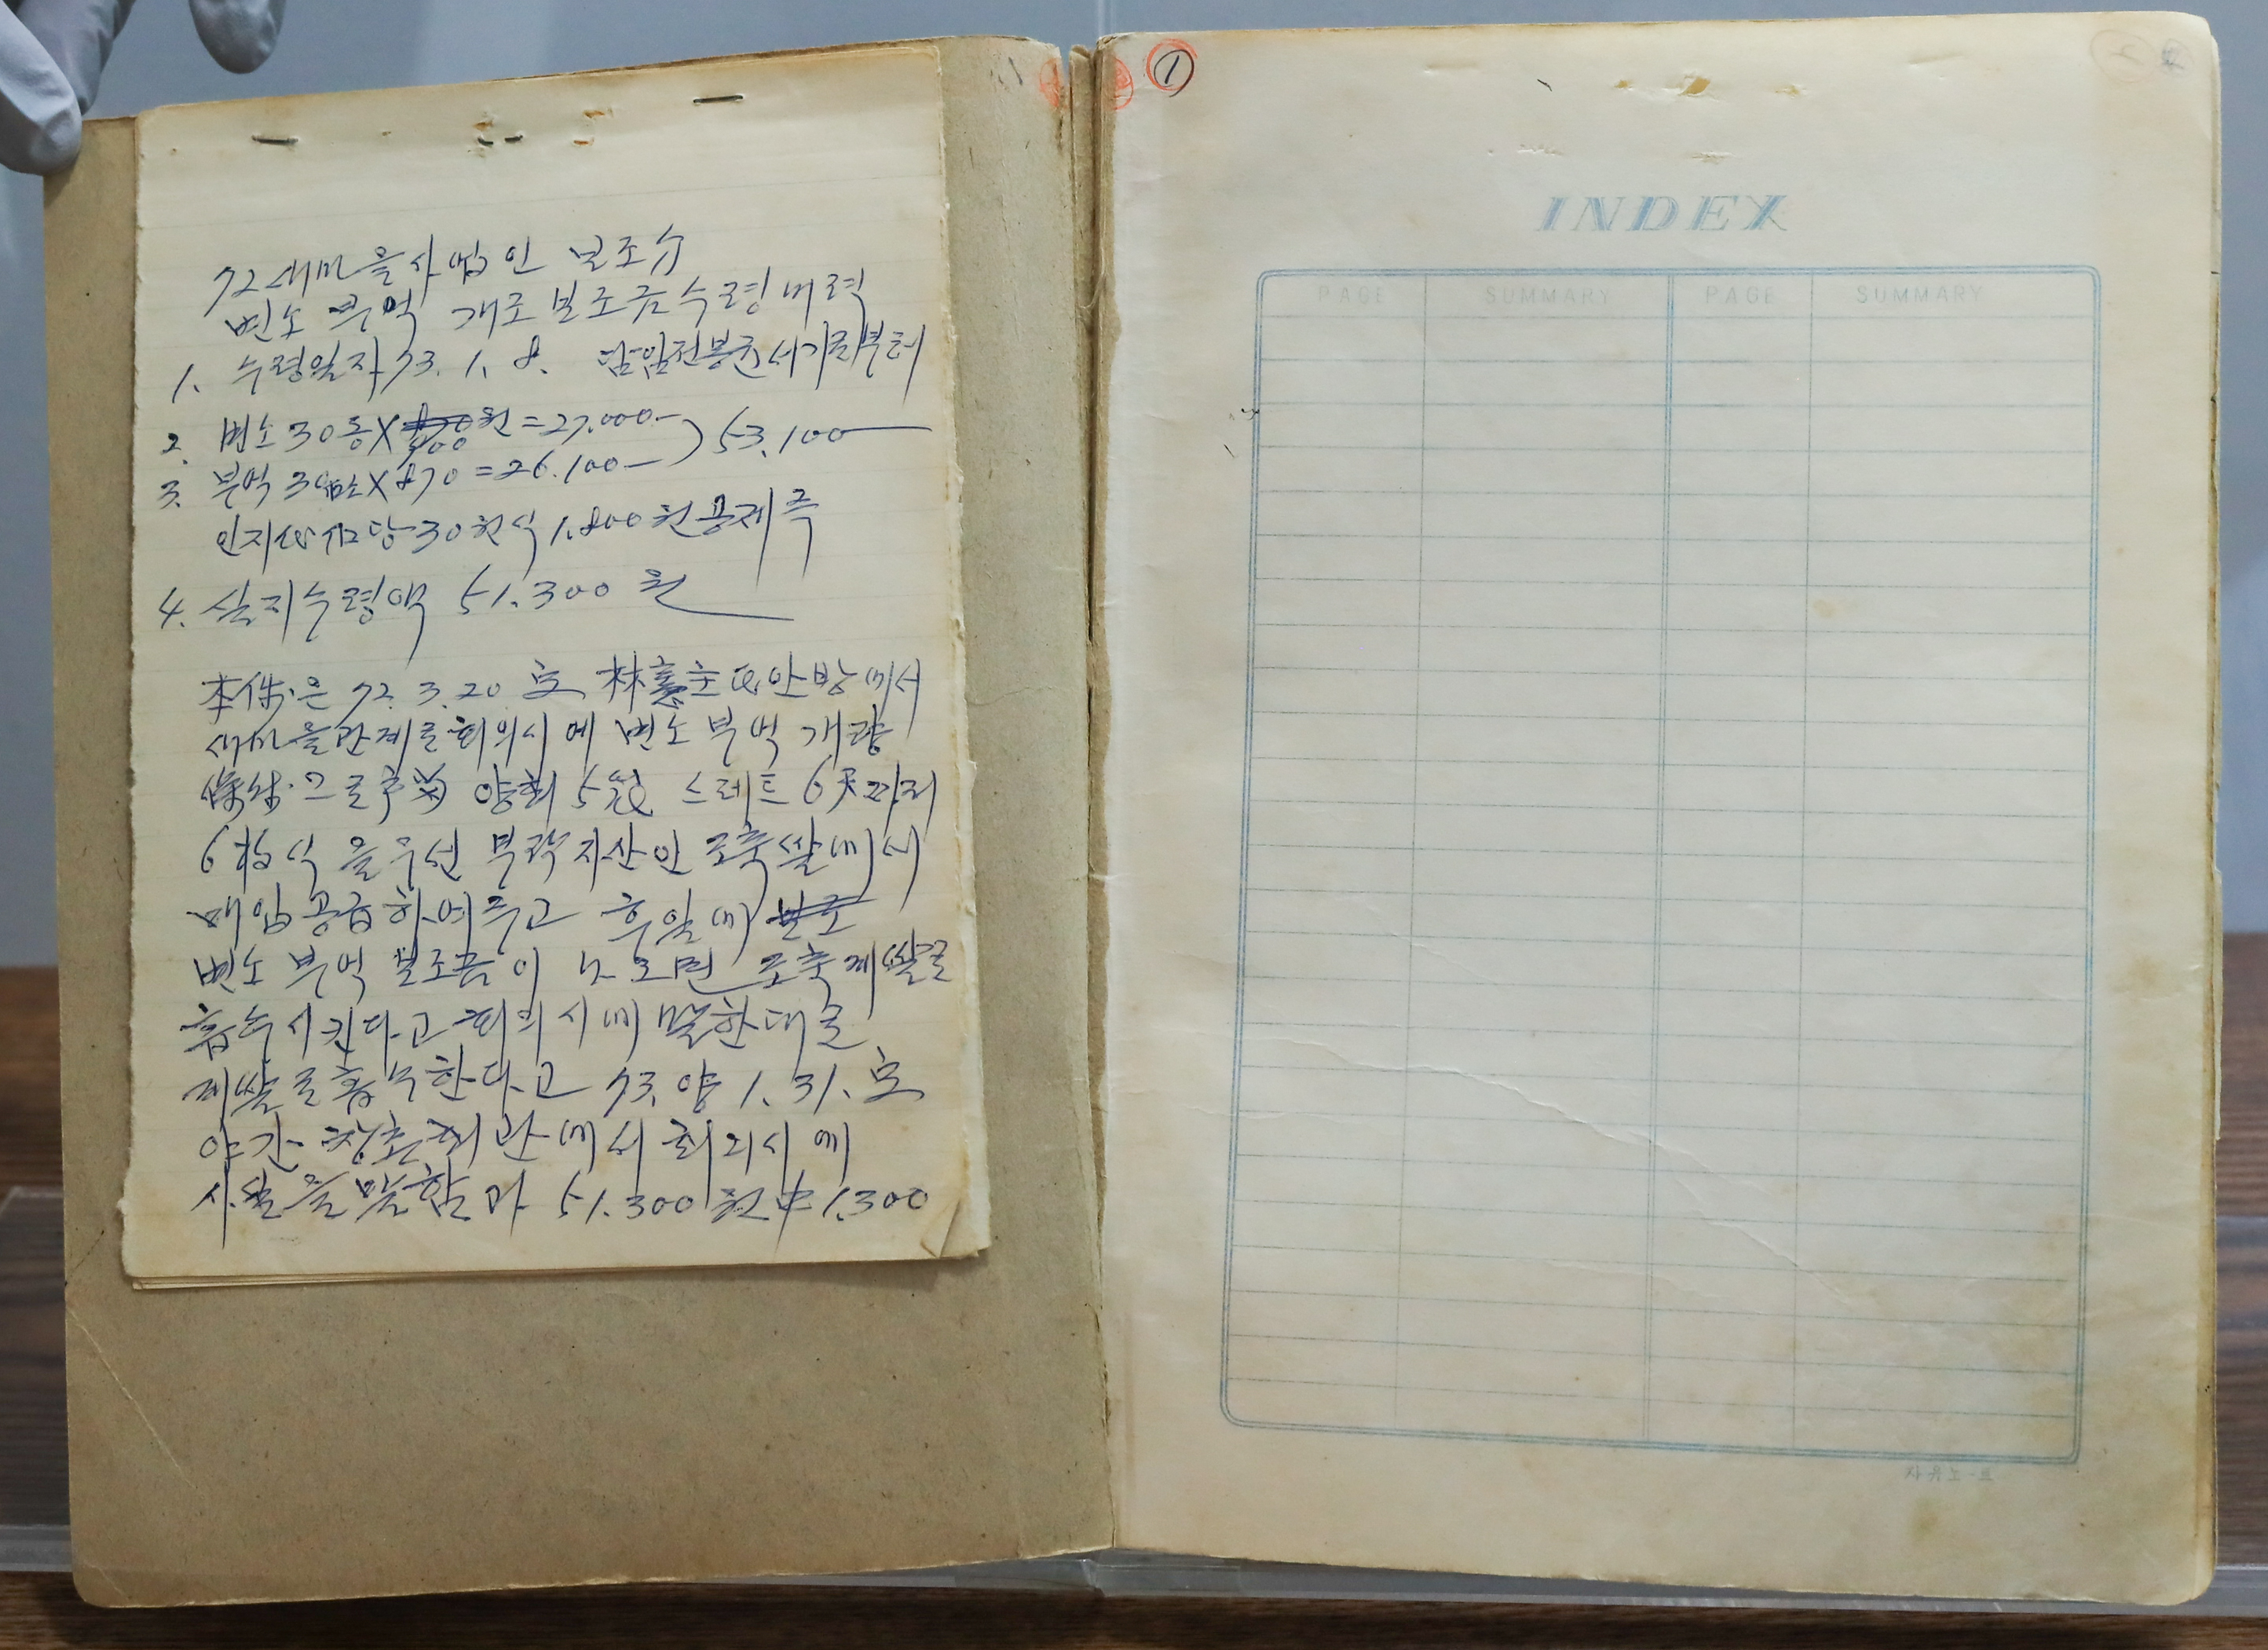 72새마을사업인 보조
변소 부엌 개조보조금수령내력
1. 수령일자 73. 1. 8. 담임전봉권서기로부터
2. 변소 30동 X 900원 = 27.000-
53.100
3. 부엌 30개소 X 870 = 26.100-
인지 당 30원식 1.800원공제 즉
4. 실지수령액 51.300 원
本件은 72. 3. 20. 林 主 안방에서
새마을관계로 회의시에 변소 부엌 개량
條件으로 양회 5 스레트 6尺짜리
6枚식 을우선 부락자산인 조축쌀에서
매입공급하여주고 후일에
변소 부엌 보조금이 나오면 조축계쌀로
흡수시킨다고 회의시에 말한대로
계쌀로흡수한다고 73. 양 1. 31.
야간 창촌회관에서 회의시에
사실을말함과 51.300원中 1.300
①
INDEX
PAGE SUMMARY PAGE SUMMARY
자유노-트